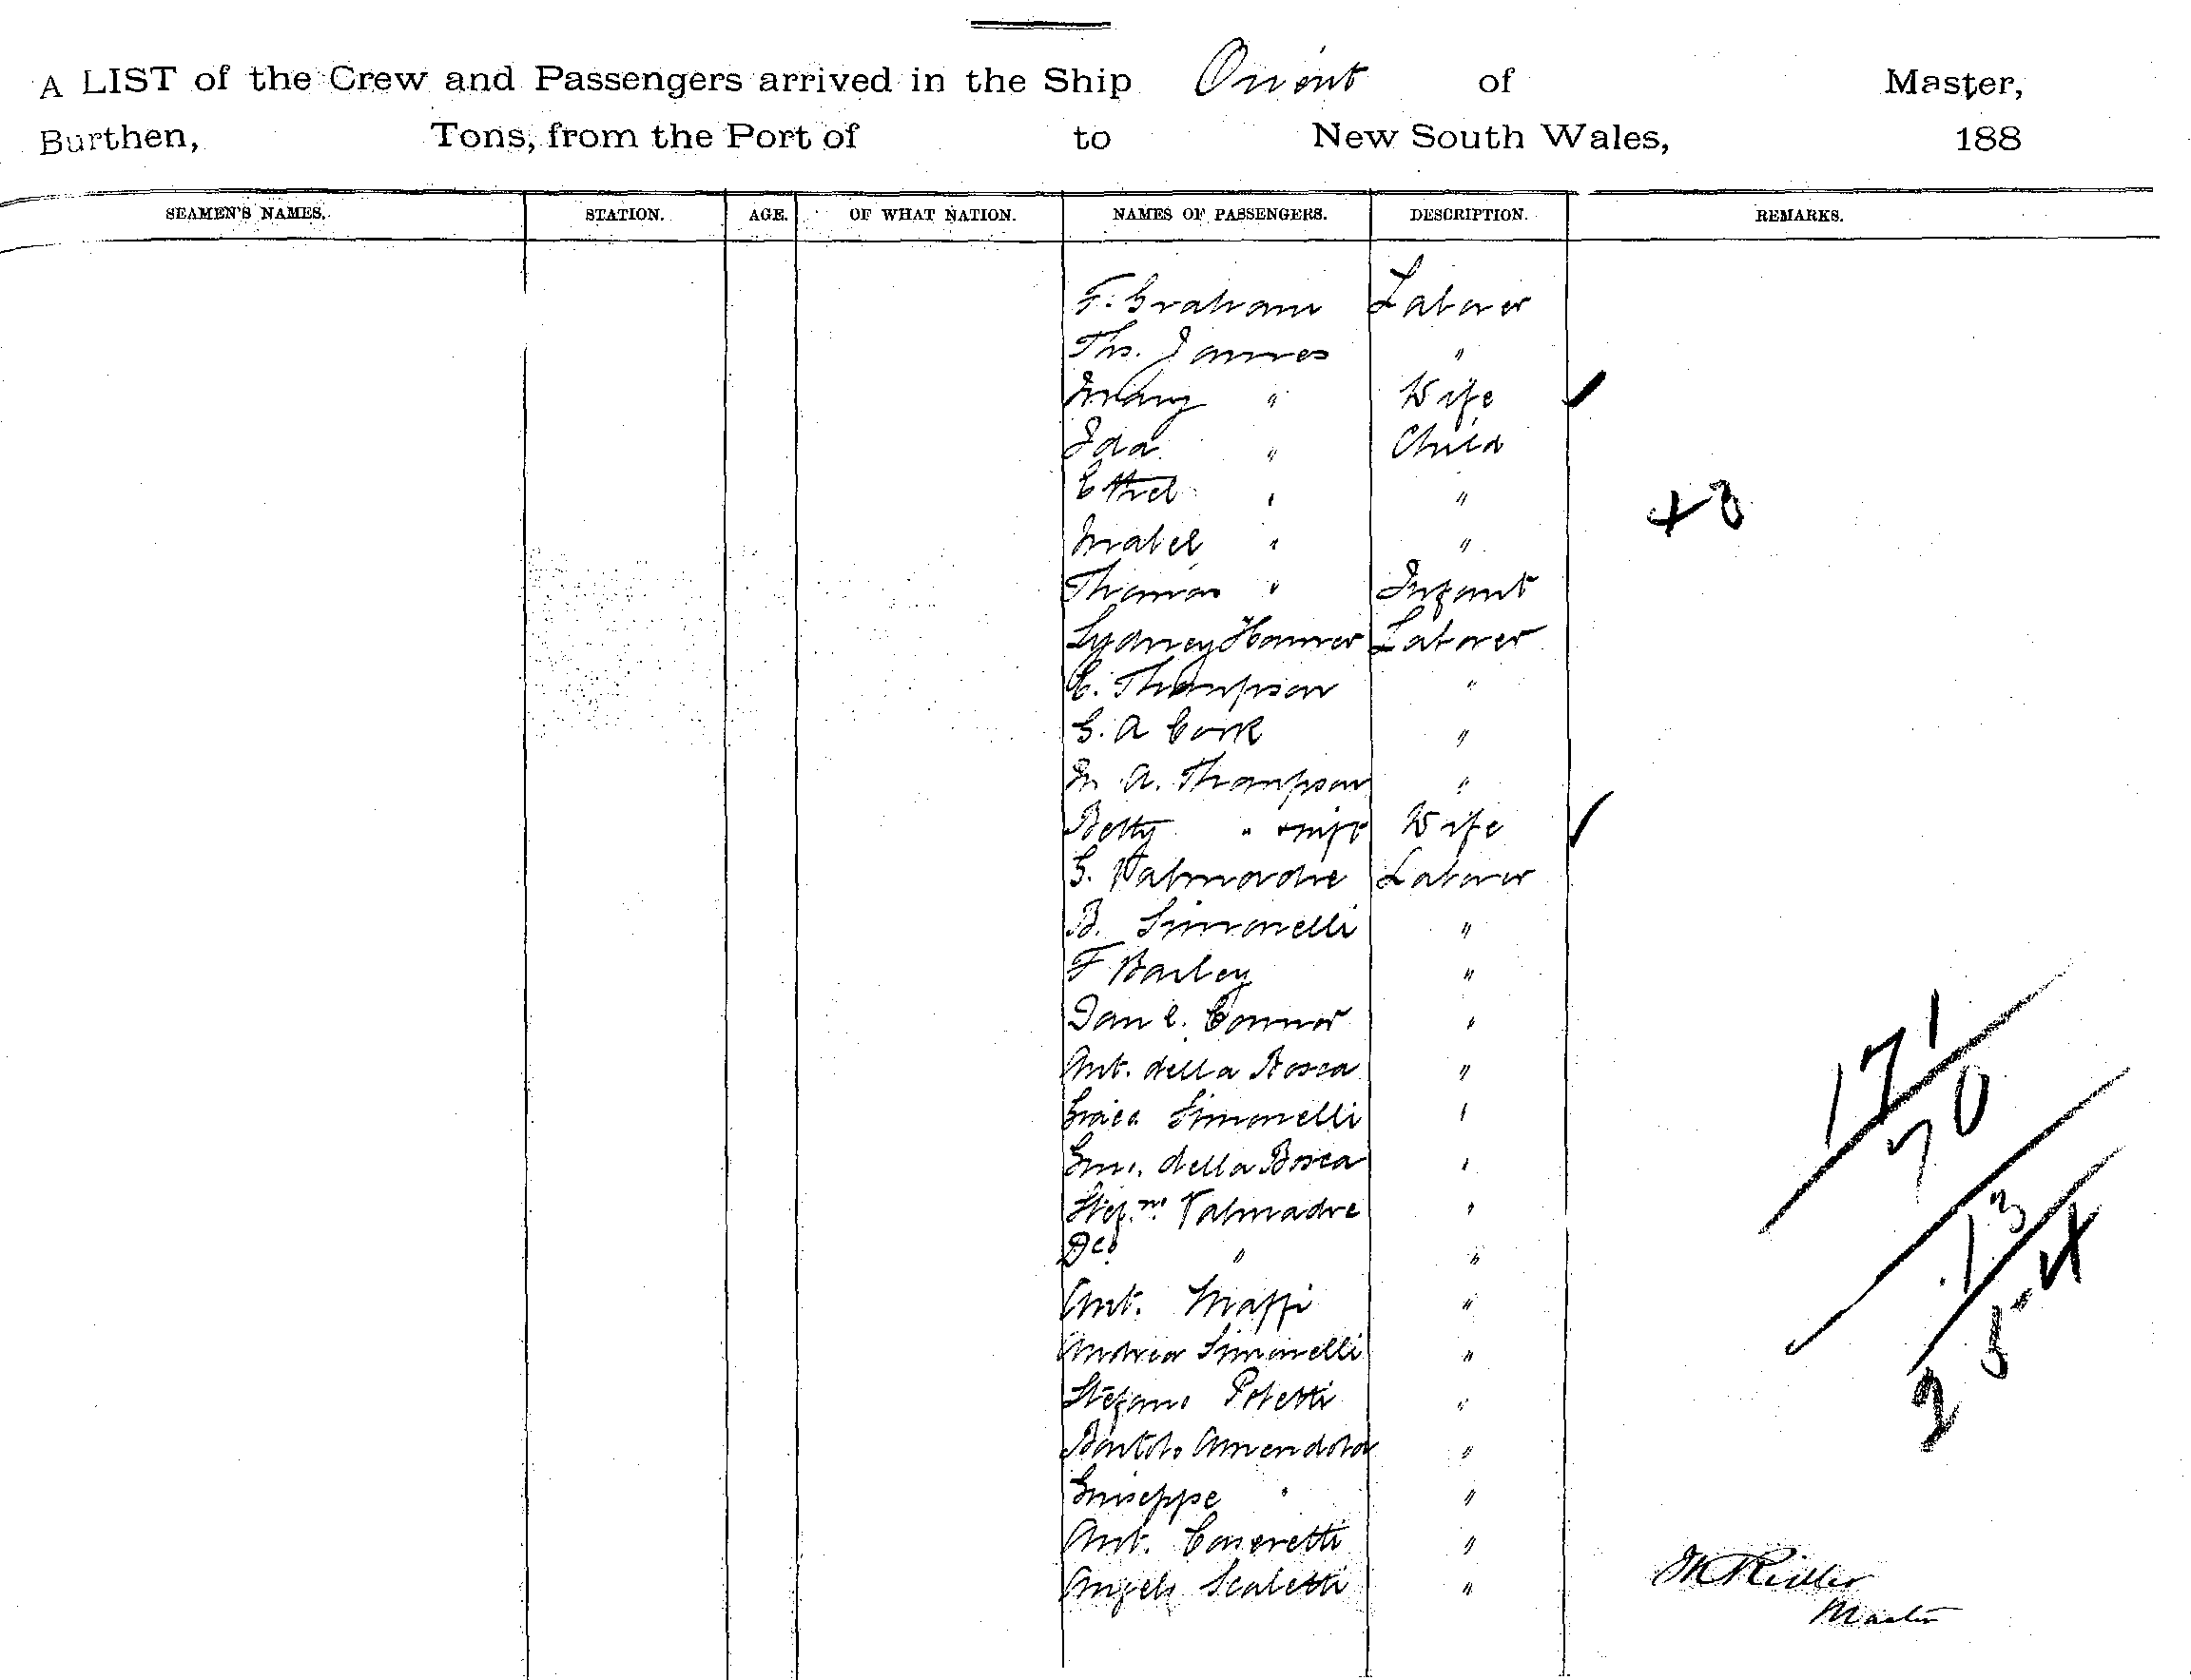 A LIST of the Crew and Passengers arrived in the Ship Orient of Master,
Burthen, Tons, from the Port of to New South Wales, 188
SEAMEN'S NAMES. STATION. AGE. OF WHAT NATION. NAMES OF PASSENGERS. DESCRIPTION. REMARKS.
F. Graham Laborer
Ths. James "
Mary " Wife
Ida " Child
Ethel " "
Mabel " "
Thomas " Infant
Sydney Laborer
C. Thompson "
G. A Cork "
M. A. Thompson "
Betty " Wife
G. Valmadre Laborer
B. Simonelli "
F Bailey "
Danl. Connor "
Ant. della Bosca "
Simonelli "
della Bosca "
Valmadre "
" "
Ant. Maffi "
Andrea Simonelli "
Stefano Poletti "
Bartolo Amendola "
Giuseppe " "
Ant. "
Angelo Scaletti "
171
70
13
254
Master